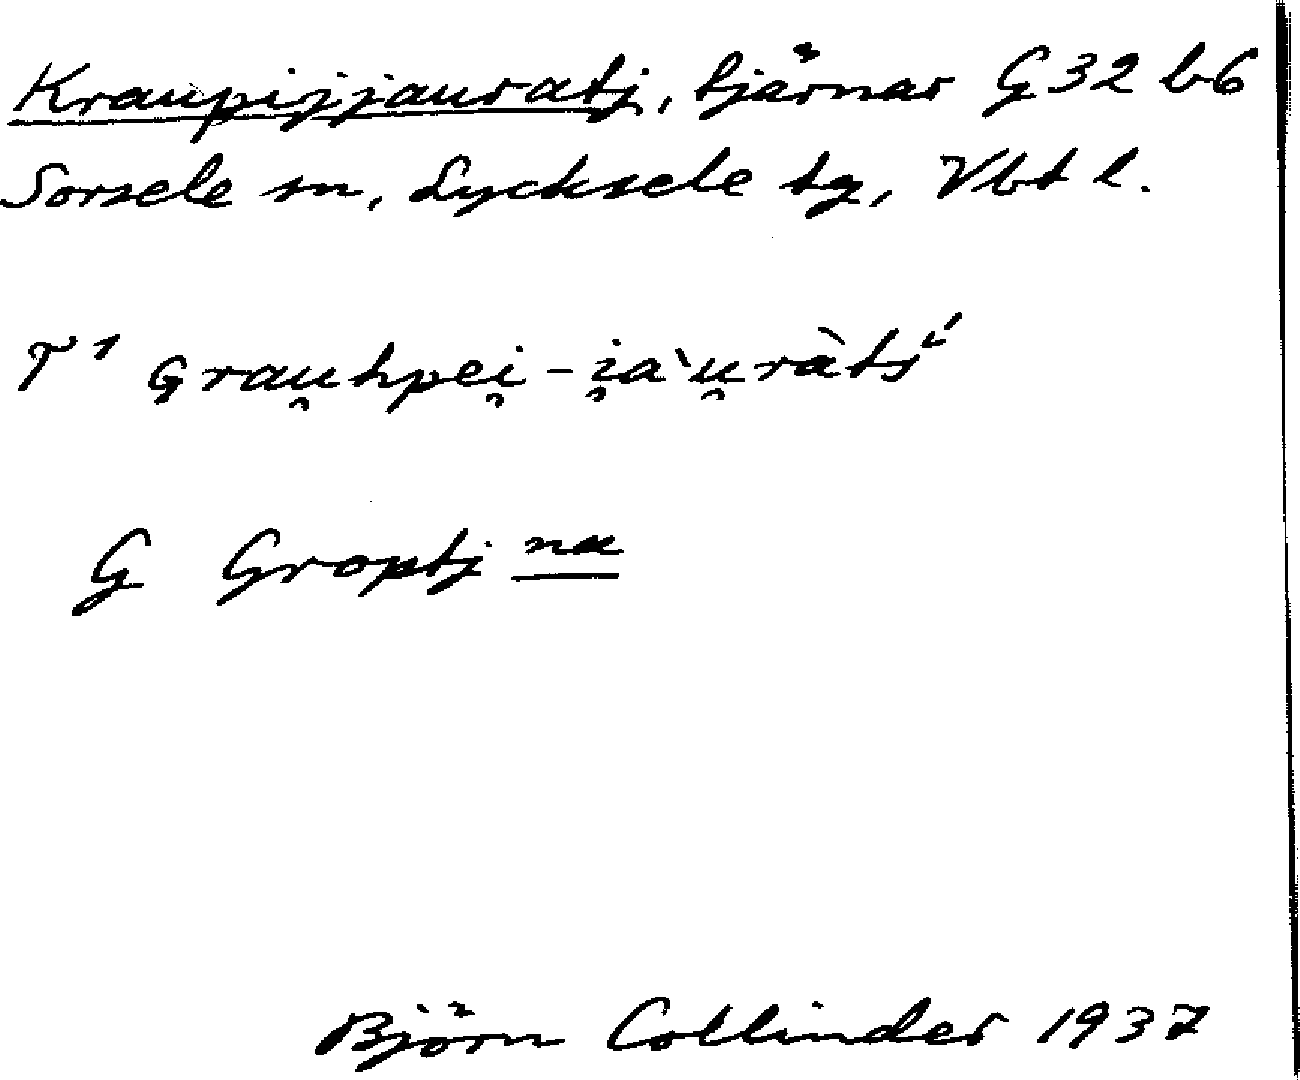 Kraupijjauratj, tjärnar G32 b6
Sorsele sn, Lycksele tg, Vbt l.
T1 Grau̯hpei̯-i̯a`u̯ràts
G Groptj na
Björn Collinder 1937